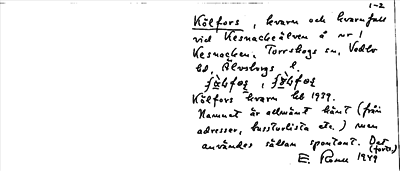 1-2
Kölfors, kvarn och kvarnfall
vid Kesnackeälven å nr 1
Kesnacken, Torrskogs sn, Vedbo
hd, Älvsborgs l.
Kölfors kvarn lbl 1939.
Namnet är allmänt känt (från
adresser, busstursliста etc.) men
användes sällan spontant. Det
(forts.)
E. 1949